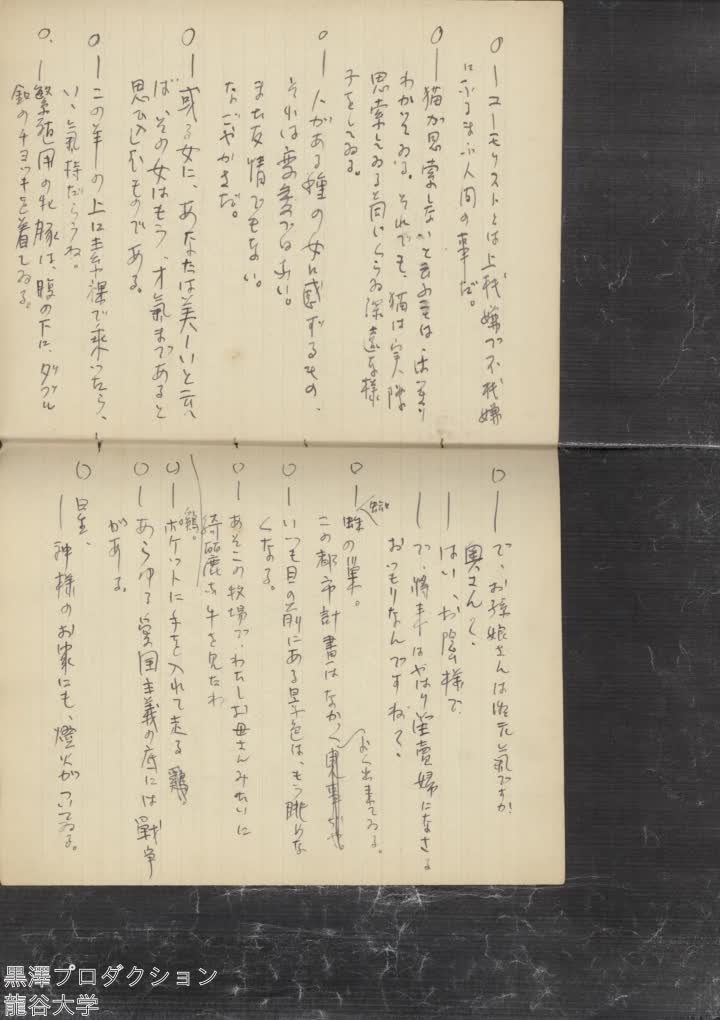 ○ーユーモリストとは上機嫌で不機嫌
にふるまふ人間の事だ。
○ー猫が思索しないと云ふ事は
わかつてゐる。それでも、猫は実際
思索してゐると同じくらゐ深遠な様
子をしてゐる。
○ー人がある種の女に感ずるもの、
それは恋愛ではない。
また友情でもない。
なごやかさだ。
○ー或る女に、あなたは美しいと云へ
ば、その女はもう、才氣まであると
思ひ込むものである。
○ーこの羊の上に素裸で乗つたら、
いゝ氣持だらうね。
○ー繁殖用の牝豚は、腹の下に、ダブル
釦のチヨッキを着てゐる。
○ーで、お孫娘さんはお元氣ですか?
奥さん?
ーはい、お陰様で
ーで、将来はやはり淫賣婦になさる
おつもりなんですね?
○ー蜘蛛の巣。
この都市計書はなかなか
よく出来てゐる。
○ーいつも目の前にある景色は、もう眺めな
くなる。
○ーあそこの牧場で、わたしお母さんみたいに
綺麗な牛を見たわ
○ーポケットに手を入れて走る鶏
鴨。
○ーあらゆる愛国主義の底には戦争
がある。
○星、
ー神様のお家にも、燈火がついてゐる。
黒澤プロダクション
龍谷大学